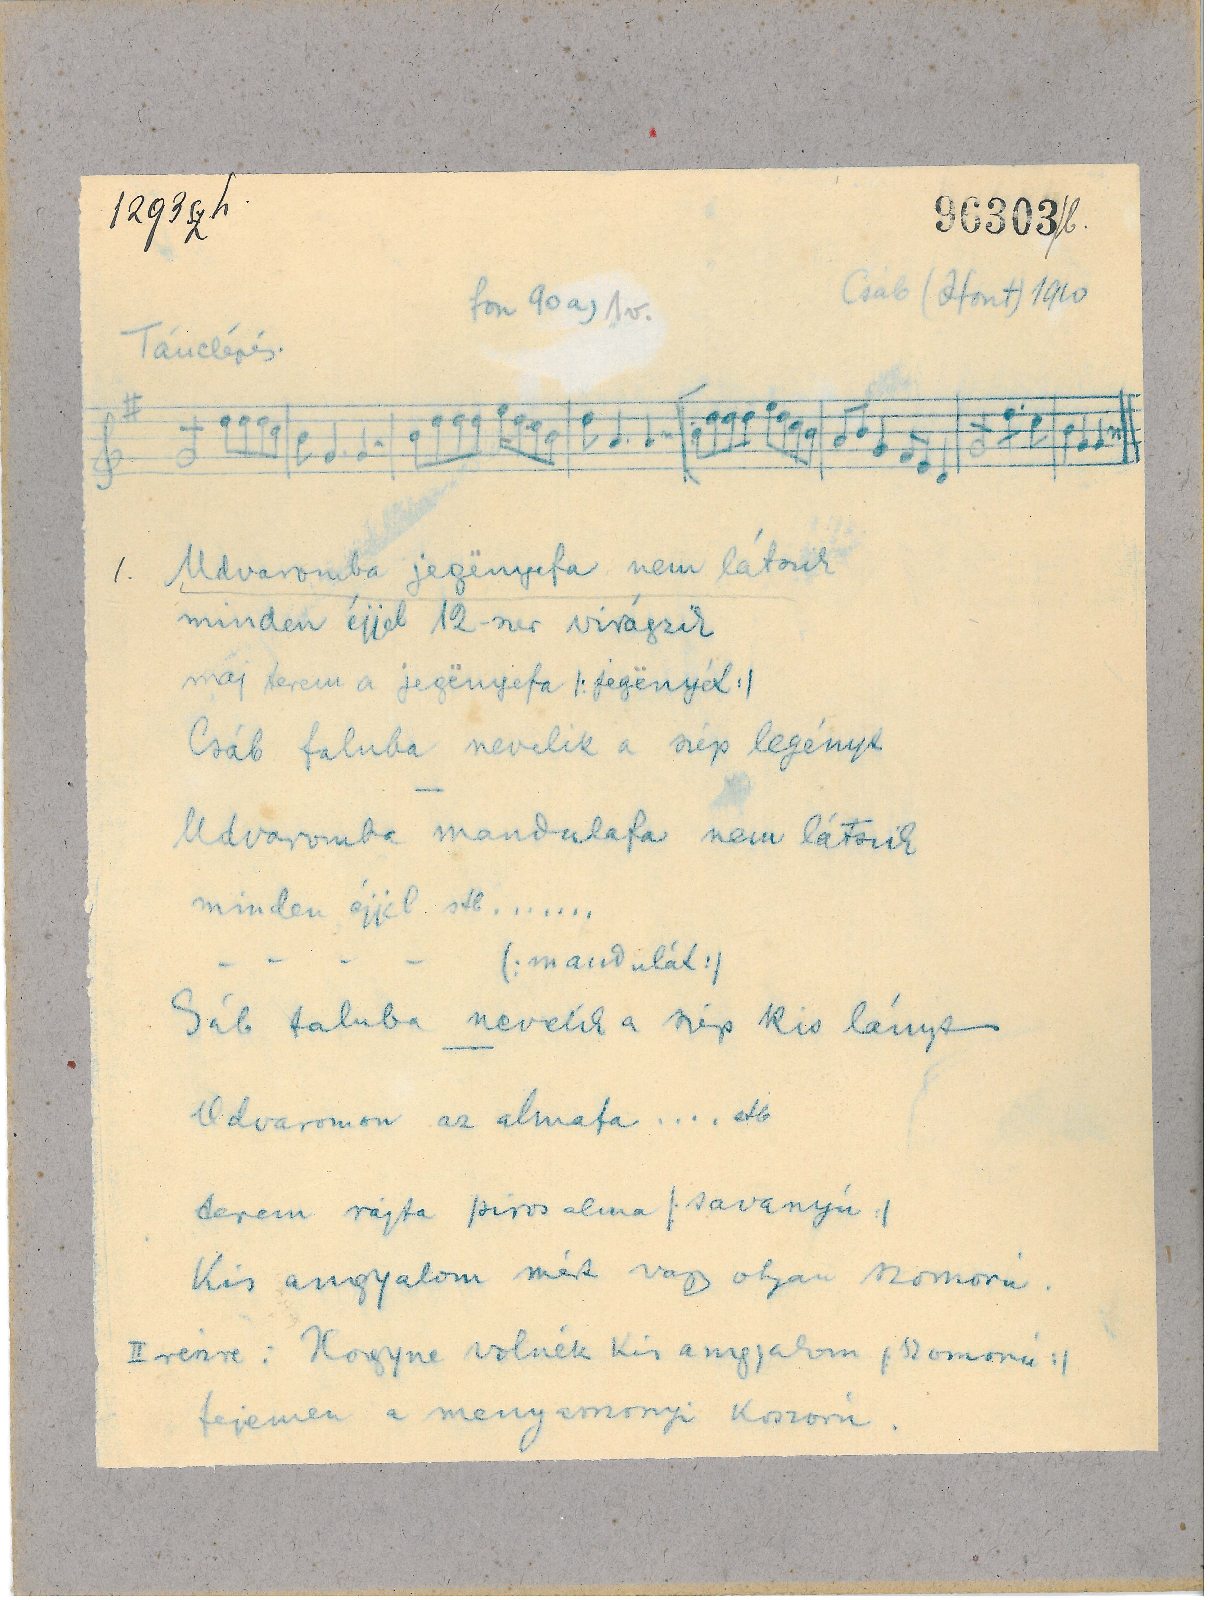 1293 szh.
96303/b.
fon 90 a) 1v.
Csáb (Hont) 1910
Tánclépés.
1. Udvaromba jegënyefa nem látszik
minden éjjel 12-szer virágzik
maj terem a jegënyefa /: jegënyét :/
Csáb faluba nevelik a szép legényt
Udvaromba mandulafa nem látszik
minden éjjel stb.......
- - - - (: mandulát :)
Sáb faluba nevelik a szép kis lányt
Udvaromon az almafa .... stb
terem rajta piros alma /: savanyú :/
Kis angyalom mért vagy olyan szomorú.
II részre: Hogyne volnék kis angyalom /: szomorú :/
fejemen a menyasszonyi koszorú.